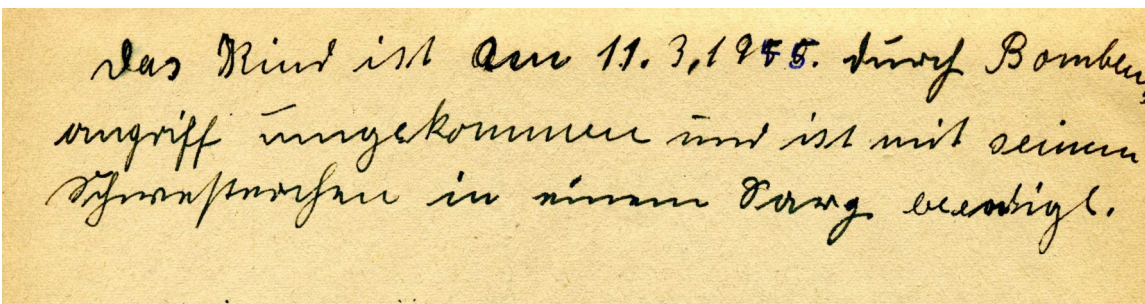 Das Kind ist am 11.3.1945. durch Bomben,
angriff umgekommen und ist mit seinem
Schwesterchen in einem Sarg beerdigt.